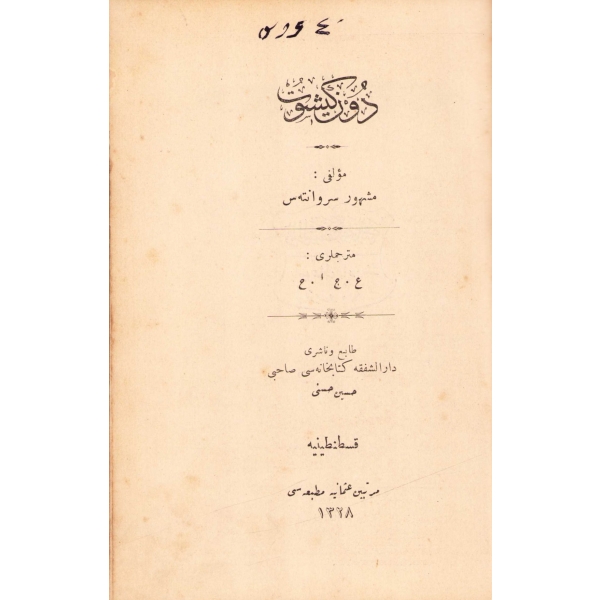 دون كیشوت
مؤلفی :
مشهور سروانته‌س
مترجملری :
ع . ج ا . ح
طابع و ناشری
دارالشفقه كتابخانه‌سی صاحبی
حسین حسنی
قسطنطینیه
مرتبین عثمانیه مطبعه‌سی
١٣٢٨